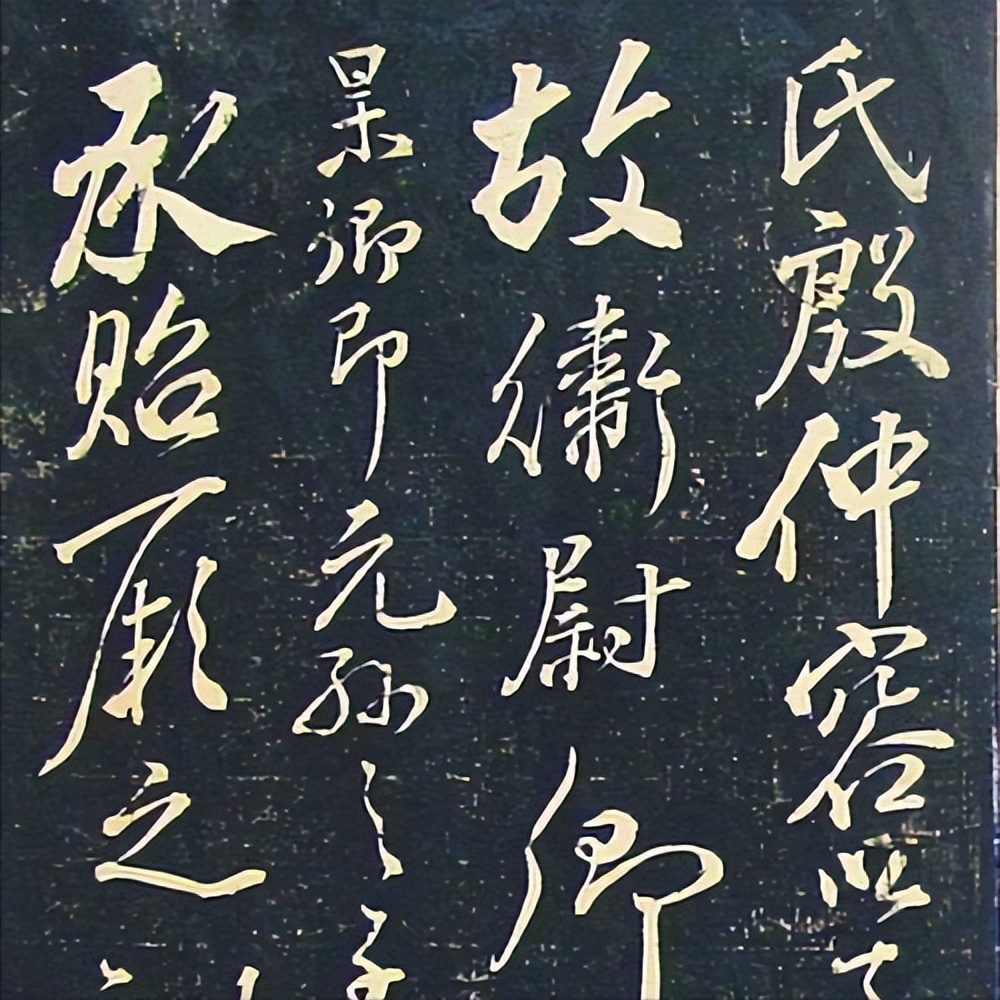 氏殷仲容以
故衛尉卿
杲卿即元孫之子
承貽顧之